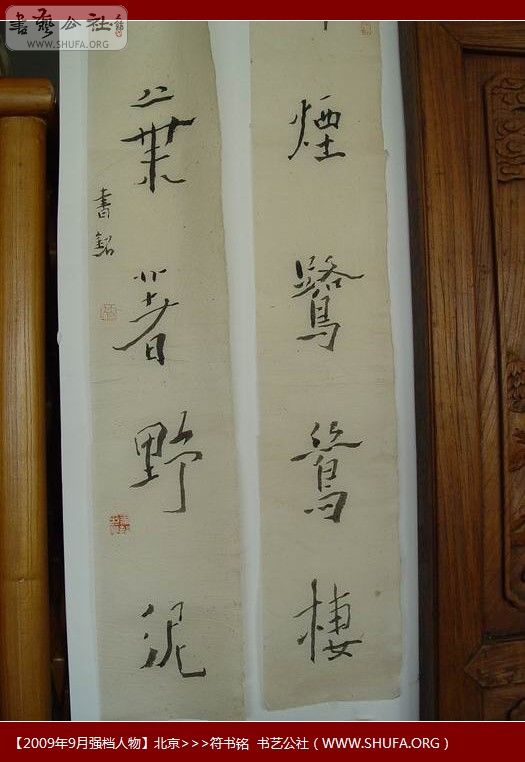 書藝公社
WWW.SHUFA.ORG
煙鷺鷥棲
葉著野泥
書銘
【2009年9月强档人物】北京>>>符书铭 书艺公社（WWW.SHUFA.ORG）